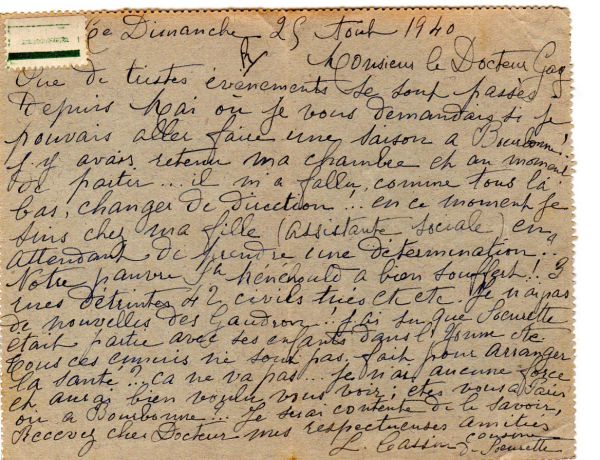 ce Dimanche 25 Août 1940
Monsieur le Docteur Gay
Que de tristes évènements se sont passés
depuis Mai où je vous demandais si je
pouvais aller faire une saison a Bourbonne!
j'y avais retenu ma chambre et au moment
de partir... il m'a fallu, comme tous là
bas, changer de direction!. en ce moment je
suis chez ma fille (assistante sociale) en
attendant de prendre une détermination..
Notre pauvre Ste Menehould a bien souffert! 3
rues détruites 42 civils tués etc etc. Je n'ai pas
de nouvelles des Gaudron! j'ai su que Sœurette
était partie avec ses enfants dans l'Yonne etc
Tous ces ennuis ne sont pas fait pour arranger
la santé? ça ne va pas... je n'ai aucune force
et aurais bien voulu vous voir; êtes vous a Paris
ou a Bourbonne?. Je serai contente de le savoir,
Recevez cher Docteur mes respectueuses amitiés
L. Cassin cousine
de Sœurette